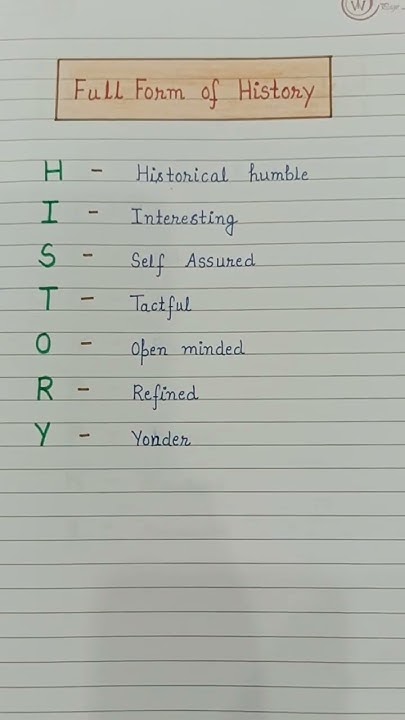 W Page
Full Form of History
H - Historical humble
I - Interesting
S - Self Assured
T - Tactful
O - Open minded
R - Refined
Y - Yonder